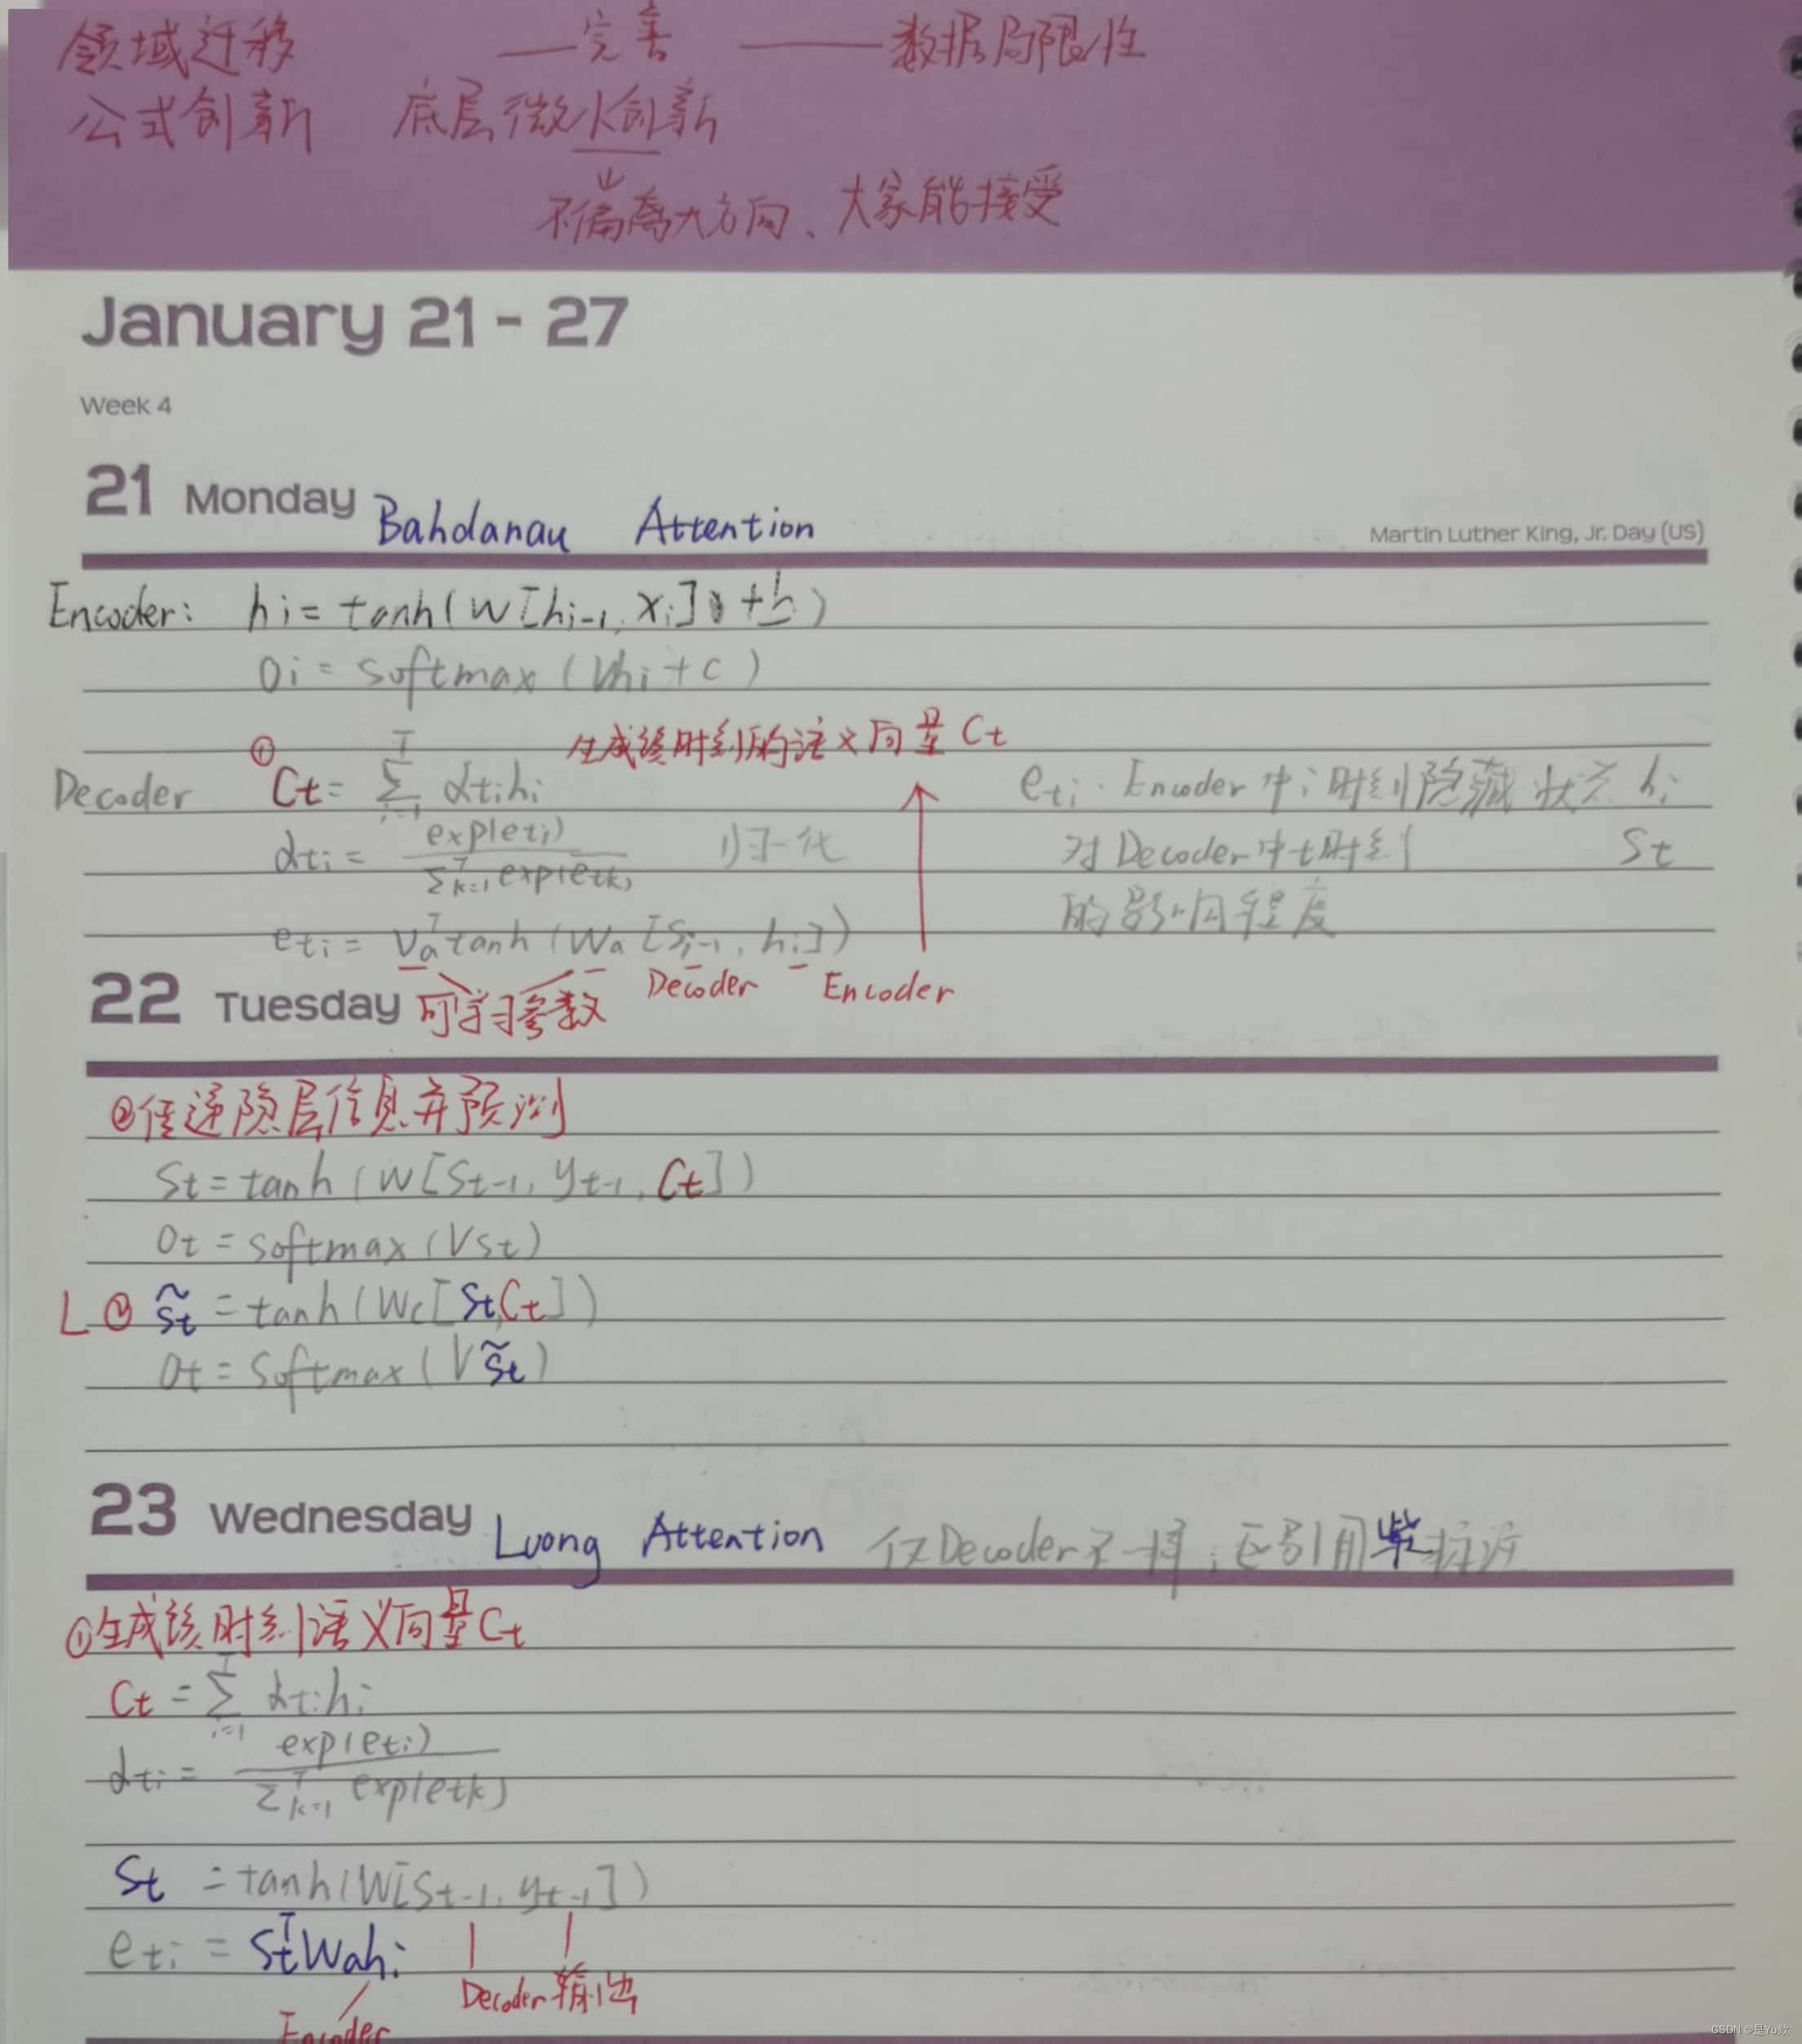 领域迁移 —完善 ——数据局限性
公式创新 底层微小创新
↓
不偏离大方向、大家能接受
January 21 - 27
Week 4
21 Monday Bahdanau Attention
Martin Luther King, Jr. Day (US)
Encoder: hi = tanh(W[hi-1, xi] + b)
Oi = softmax(Vhi + c)
① 生成该时刻的语义向量 Ct
Decoder Ct = Σ_{i=1}^{T} αti hi
eti: Encoder中i时刻隐藏状态 hi
αti = exp(eti) / Σ_{k=1}^{T} exp(etk) 归一化
对Decoder中t时刻 St
的影响程度
eti = Va^T tanh(Wa[Si-1, hi])
Decoder Encoder
22 Tuesday 可学习参数
②传递隐层信息并预测
St = tanh(W[St-1, yt-1, Ct])
Ot = softmax(VSt)
L ② S̃t = tanh(Wc[St,Ct])
Ot = softmax(VS̃t)
23 Wednesday Luong Attention 仅Decoder不一样;区别用紫标注
①生成该时刻语义向量Ct
Ct = Σ_{i=1}^{T} αti hi
αti = exp(eti) / Σ_{k=1}^{T} exp(etk)
St = tanh(W[St-1, yt-1])
eti = St^T Wahi
Decoder输出
Encoder
CSDN @是Yu欸